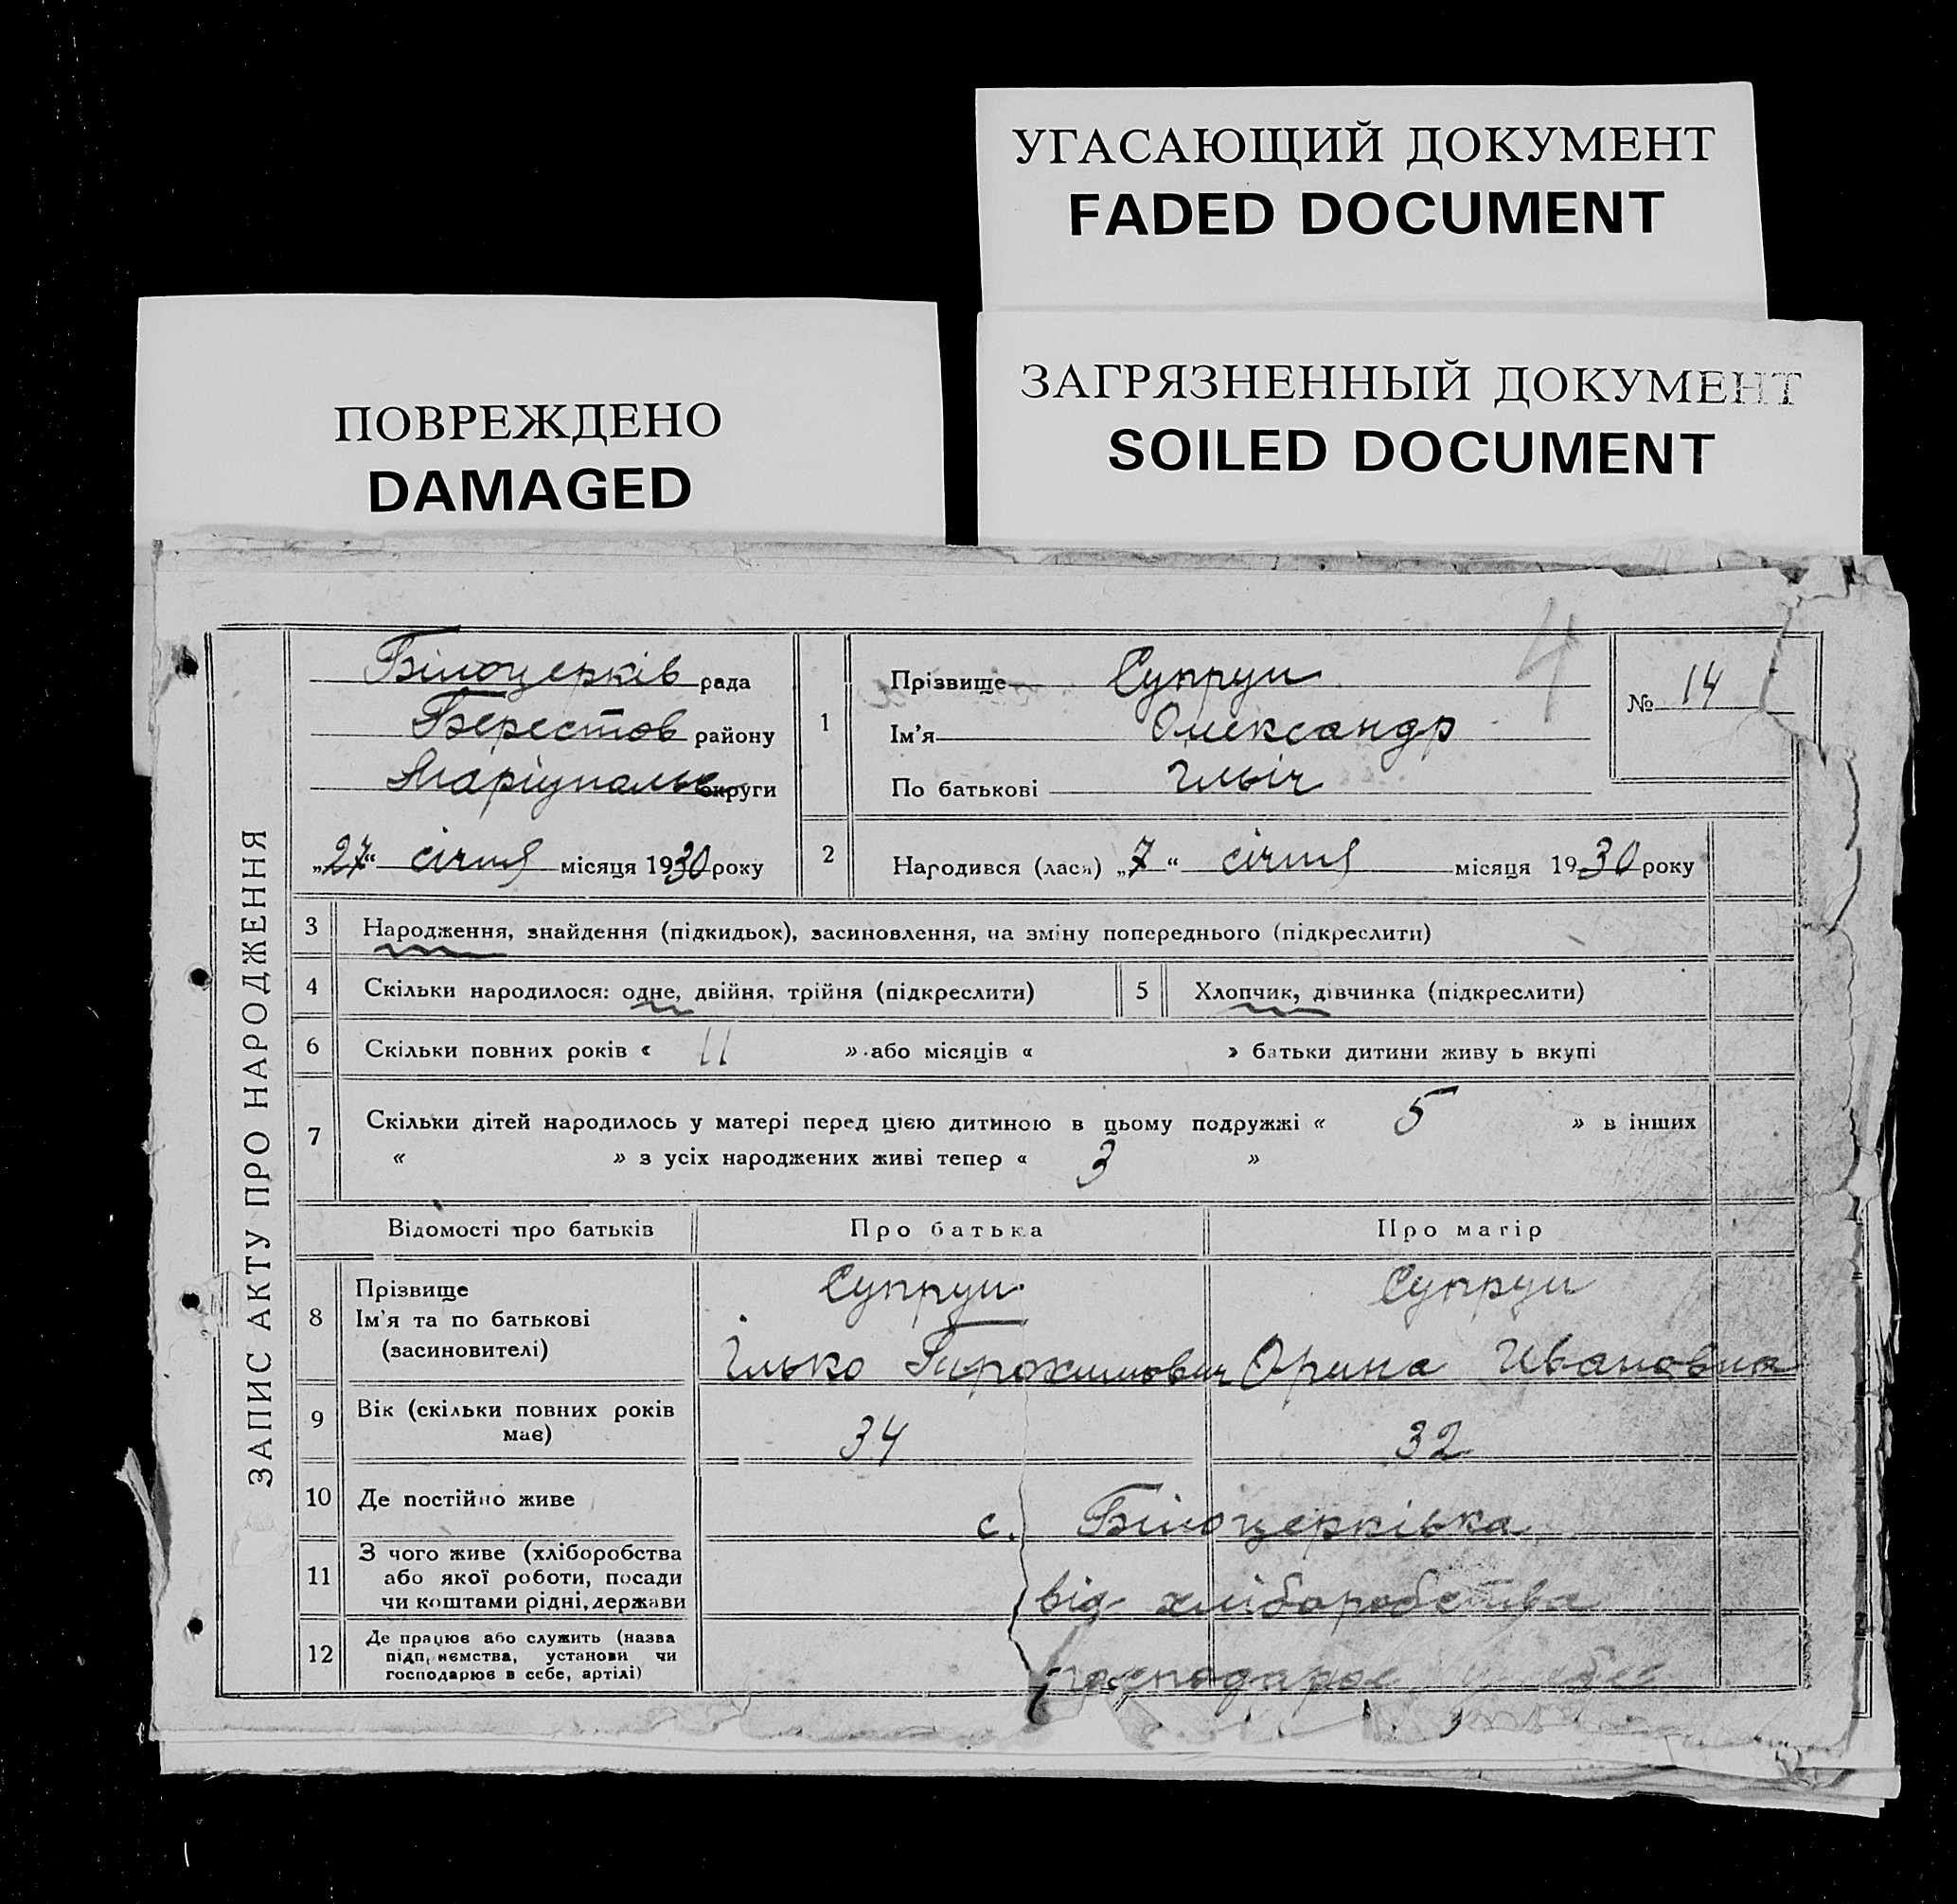 УГАСАЮЩИЙ ДОКУМЕНТ
FADED DOCUMENT
ЗАГРЯЗНЕННЫЙ ДОКУМЕНТ
SOILED DOCUMENT
ПОВРЕЖДЕНО
DAMAGED
ЗАПИС АКТУ ПРО НАРОДЖЕННЯ
Білоцерків рада
Берестов району
Маріупольс округи
„27“ січня місяця 1930 року
1
Прізвище Супрун
Ім'я Олександр
По батькові Ільіч
4
№ 14
2
Народився (лася) „7“ січня місяця 1930 року
3 Народження, знайдення (підкидьок), засиновлення, на зміну попереднього (підкреслити)
4 Скільки народилося: одне, двійня, трійня (підкреслити)
5 Хлопчик, дівчинка (підкреслити)
6 Скільки повних років « 11 » або місяців « » батьки дитини живу ь вкупі
7 Скільки дітей народилось у матері перед цією дитиною в цьому подружжі « 5 » в інших
« » з усіх народжених живі тепер « 3 »
Відомості про батьків Про батька Про матір
8 Прізвище
Ім'я та по батькові
(засиновителі)
Супрун
Ілько
Супрун
Орина Ивановна
9 Вік (скільки повних років
має)
34 32
10 Де постійно живе с. Білоцерківка
11 З чого живе (хліборобства
або якої роботи, посади
чи коштами рідні, держави
від хліборобства
12 Де працює або служить (назва
підприємства, установи чи
господарює в себе, артілі)
господарює у себе